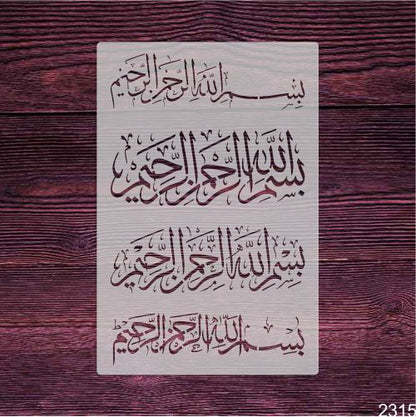 بسم الله الرحمن الرحيم
بسم الله الرحمن الرحيم
بسم الله الرحمن الرحيم
بسم الله الرحمن الرحيم
2315